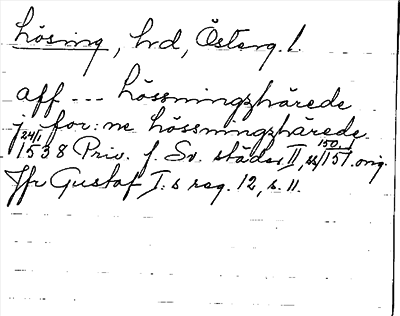 Lösing, hrd, Österg. l.
aff --- Lössningzhärede
j for:ne Lössningzhärede
24/1 1538 Priv. f. Sv. städer II, s. 150 151. orig.
Jfr Gustaf I:s reg. 12, s. 11.